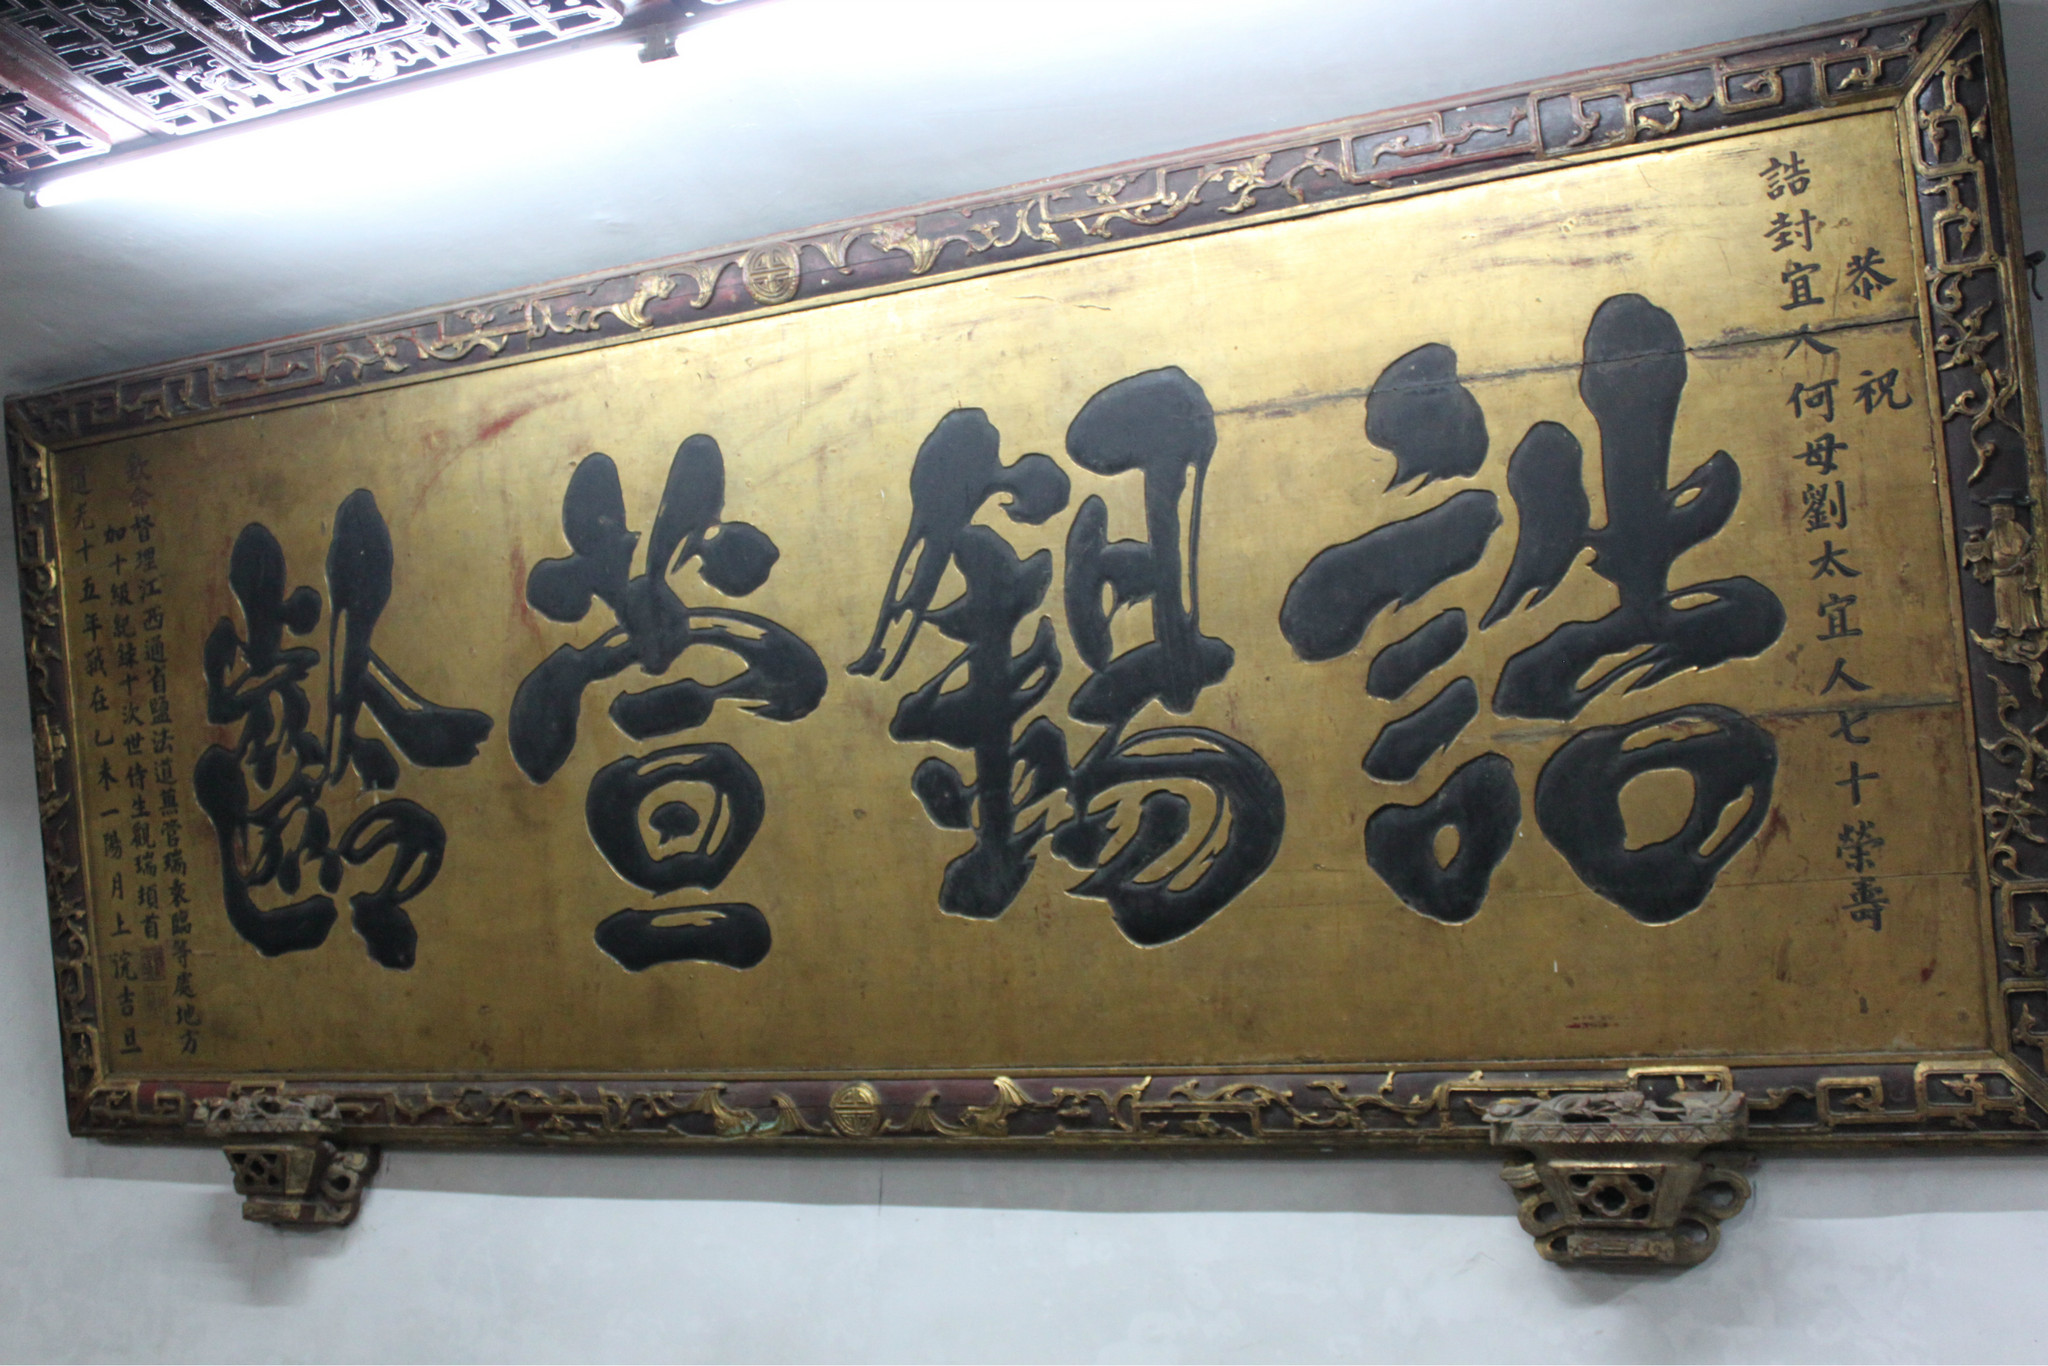 恭祝
誥封宜人何母劉太宜人七十榮壽
誥錫萱齡
欽命督理江西通省鹽法道兼管瑞袁臨等處地方
加十級紀錄十次世侍生觀瑞頓首
道光十五年歲在乙未一陽月上浣吉旦